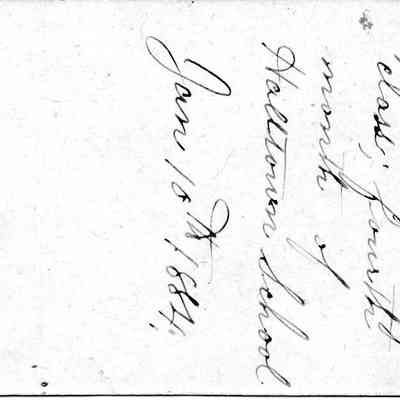 class; fourth
month of
Halltown School
Jan 10th 1884.